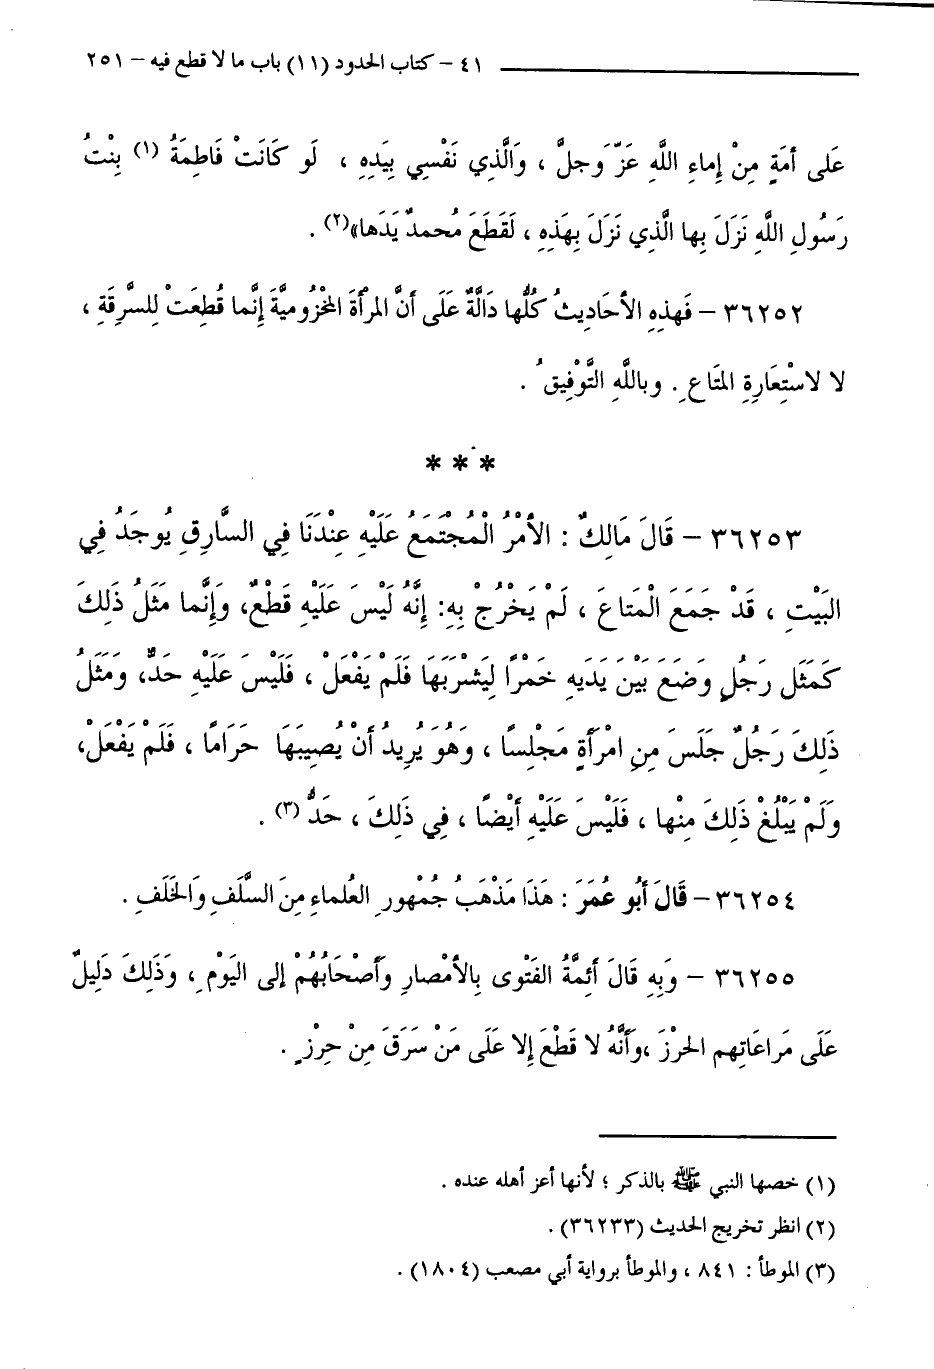 ٤١ – كتاب الحدود (١١) باب ما لا قطع فيه – ٢٥١
عَلى أمَةٍ مِنْ إِماءِ اللَّهِ عَزّ وَجلَّ ، وَالَّذِي نَفْسِي بِيَدِهِ ، لَو كَانَتْ فَاطِمَةُ (١) بِنْتُ
رَسُولِ اللَّهِ نَزَلَ بِها الَّذِي نَزَلَ بِهَذِهِ ، لَقَطَعَ مُحمدٌ يَدَها»(٢) .
٣٦٢٥٢ – فَهذِهِ الأحَادِيثُ كُلُّها دَالَّةٌ عَلَى أنَّ المَرْأةَ المَخْزُوميَّةَ إنَّما قُطِعَتْ لِلسَّرِقَةِ ،
لا لاسْتِعَارِةِ المتَاعِ . وباللَّهِ التَّوْفِيقُ .
* * *
٣٦٢٥٣ – قَالَ مَالِكٌ : الأمْرُ الْمُجْتَمَعُ عَلَيْهِ عِنْدَنَا فِي السَّارِقِ يُوجَدُ فِي
البَيْتِ ، قَدْ جَمَعَ الْمَتاعَ ، لَمْ يَخْرُجْ بِهِ: إِنَّهُ لَيْسَ عَلَيْهِ قَطْعٌ، وَإِنَّما مَثَلُ ذَلِكَ
كَمَثَلِ رَجُلٍ وَضَعَ بَيْنَ يَدَيهِ خَمْرًا لِيَشْرَبَهَا فَلَمْ يَفْعَلْ ، فَلَيْسَ عَلَيْهِ حَدٌّ، وَمَثَلُ
ذَلِكَ رَجُلٌ جَلَسَ مِنِ امْرَأةٍ مَجْلِسًا ، وَهُوَ يُرِيدُ أنْ يُصِيبَهَا حَرَامًا ، فَلَمْ يَفْعَلْ،
وَلَمْ يَبْلُغْ ذَلِكَ مِنْها ، فَلَيْسَ عَلَيْهِ أيْضًا ، فِي ذَلِكَ ، حَدٌّ (٣) .
٣٦٢٥٤ – قَالَ أَبُو عُمَرَ : هَذَا مَذْهَبُ جُمْهورِ العُلماءِ مِنَ السَّلَفِ وَالخَلَفِ .
٣٦٢٥٥ – وَبِهِ قَالَ أَئِمَّةُ الفَتْوى بِالأمْصارِ وَأصْحَابُهُمْ إلى اليَوْمِ ، وَذَلِكَ دَلِيلٌ
عَلَى مَراعَاتِهم الحَرْزَ ،وَأنَّهُ لا قَطْعَ إِلا عَلَى مَنْ سَرَقَ مِنْ حِرْزٍ .
(١) خصها النبي ﷺ بالذكر ؛ لأنها أعز أهله عنده .
(٢) انظر تخريج الحديث (٣٦٢٣٣) .
(٣) الموطأ : ٨٤١ ، والموطأ برواية أبي مصعب (١٨٠٤) .